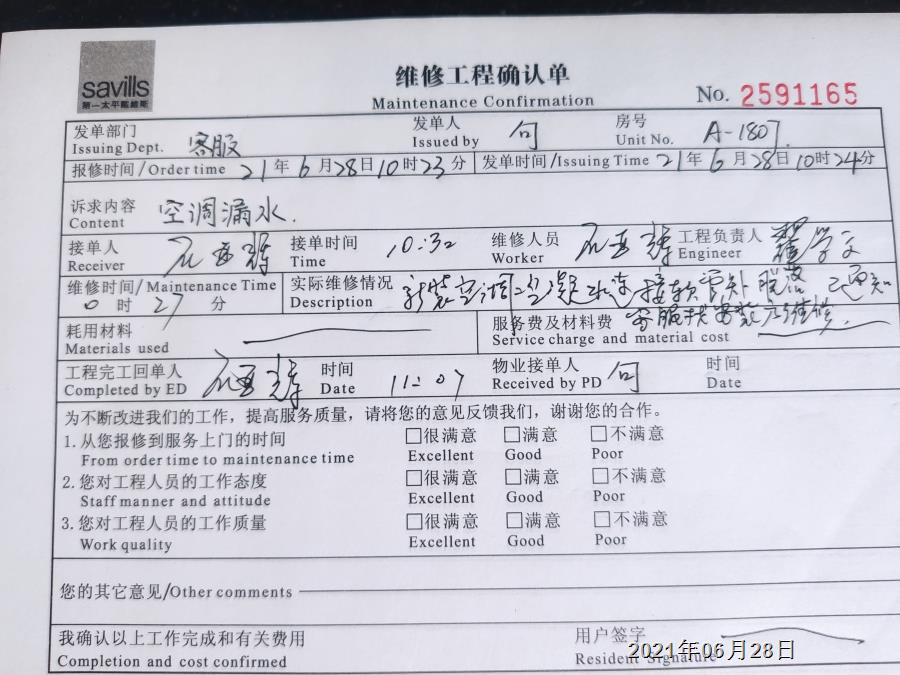 savills
第一太平戴维斯
维修工程确认单
Maintenance Confirmation
No. 2591165
发单部门 客服 发单人 向 房号 A-1807
Issuing Dept. Issued by Unit No.
报修时间/Order time 21年6月28日10时23分 发单时间/Issuing Time 21年6月28日10时24分
诉求内容 空调漏水.
Content
接单人 接单时间 10:32 维修人员 工程负责人
Receiver Time Worker Engineer
维修时间/Maintenance Time 实际维修情况
0时27分 Description 新装空调 接软管处脱落 已通知
客服找安装 维修.
耗用材料 服务费及材料费
Materials used Service charge and material cost
工程完工回单人 时间 11:07 物业接单人 时间
Completed by ED Date Received by PD Date
为不断改进我们的工作，提高服务质量，请将您的意见反馈我们，谢谢您的合作。
1.从您报修到服务上门的时间 □很满意 □满意 □不满意
From order time to maintenance time Excellent Good Poor
2.您对工程人员的工作态度 □很满意 □满意 □不满意
Staff manner and attitude Excellent Good Poor
3.您对工程人员的工作质量 □很满意 □满意 □不满意
Work quality Excellent Good Poor
您的其它意见/Other comments
我确认以上工作完成和有关费用 用户签字
Completion and cost confirmed Resident Signature
2021年06月28日